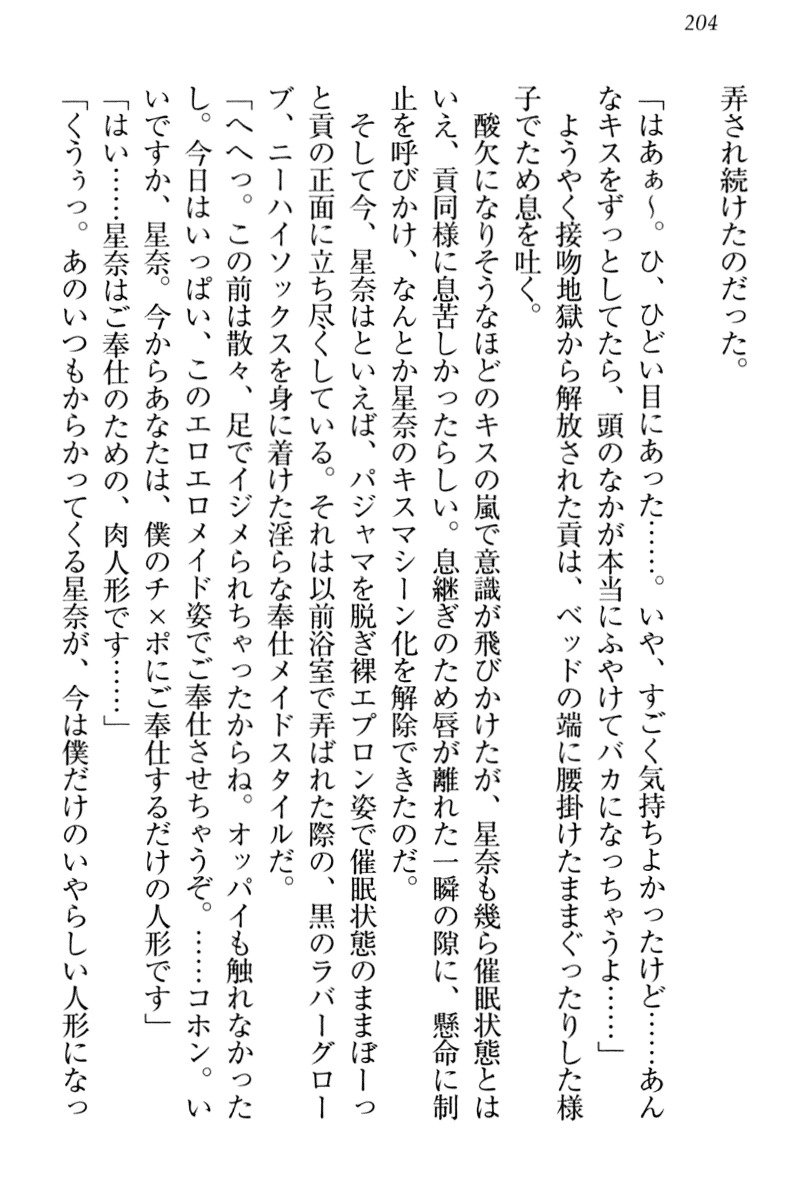 204
弄され続けたのだった。
「はあぁ～。ひ、ひどい目にあった……。いや、すごく気持ちよかったけど……あん
なキスをずっとしてたら、頭のなかが本当にふやけてバカになっちゃうよ……」
　ようやく接吻地獄から解放された貢は、ベッドの端に腰掛けたままぐったりした様
子でため息を吐く。
　酸欠になりそうなほどのキスの嵐で意識が飛びかけたが、星奈も幾ら催眠状態とは
いえ、貢同様に息苦しかったらしい。息継ぎのため唇が離れた一瞬の隙に、懸命に制
止を呼びかけ、なんとか星奈のキスマシーン化を解除できたのだ。
　そして今、星奈はといえば、パジャマを脱ぎ裸エプロン姿で催眠状態のままぼーっ
と貢の正面に立ち尽くしている。それは以前浴室で弄ばれた際の、黒のラバーグロー
ブ、ニーハイソックスを身に着けた淫らな奉仕メイドスタイルだ。
「へへっ。この前は散々、足でイジメられちゃったからね。オッパイも触れなかった
し。今日はいっぱい、このエロエロメイド姿でご奉仕させちゃうぞ。……コホン。い
いですか、星奈。今からあなたは、僕のチ×ポにご奉仕するだけの人形です」
「はい……星奈はご奉仕のための、肉人形です……」
「くうぅっ。あのいつもからかってくる星奈が、今は僕だけのいやらしい人形になっ